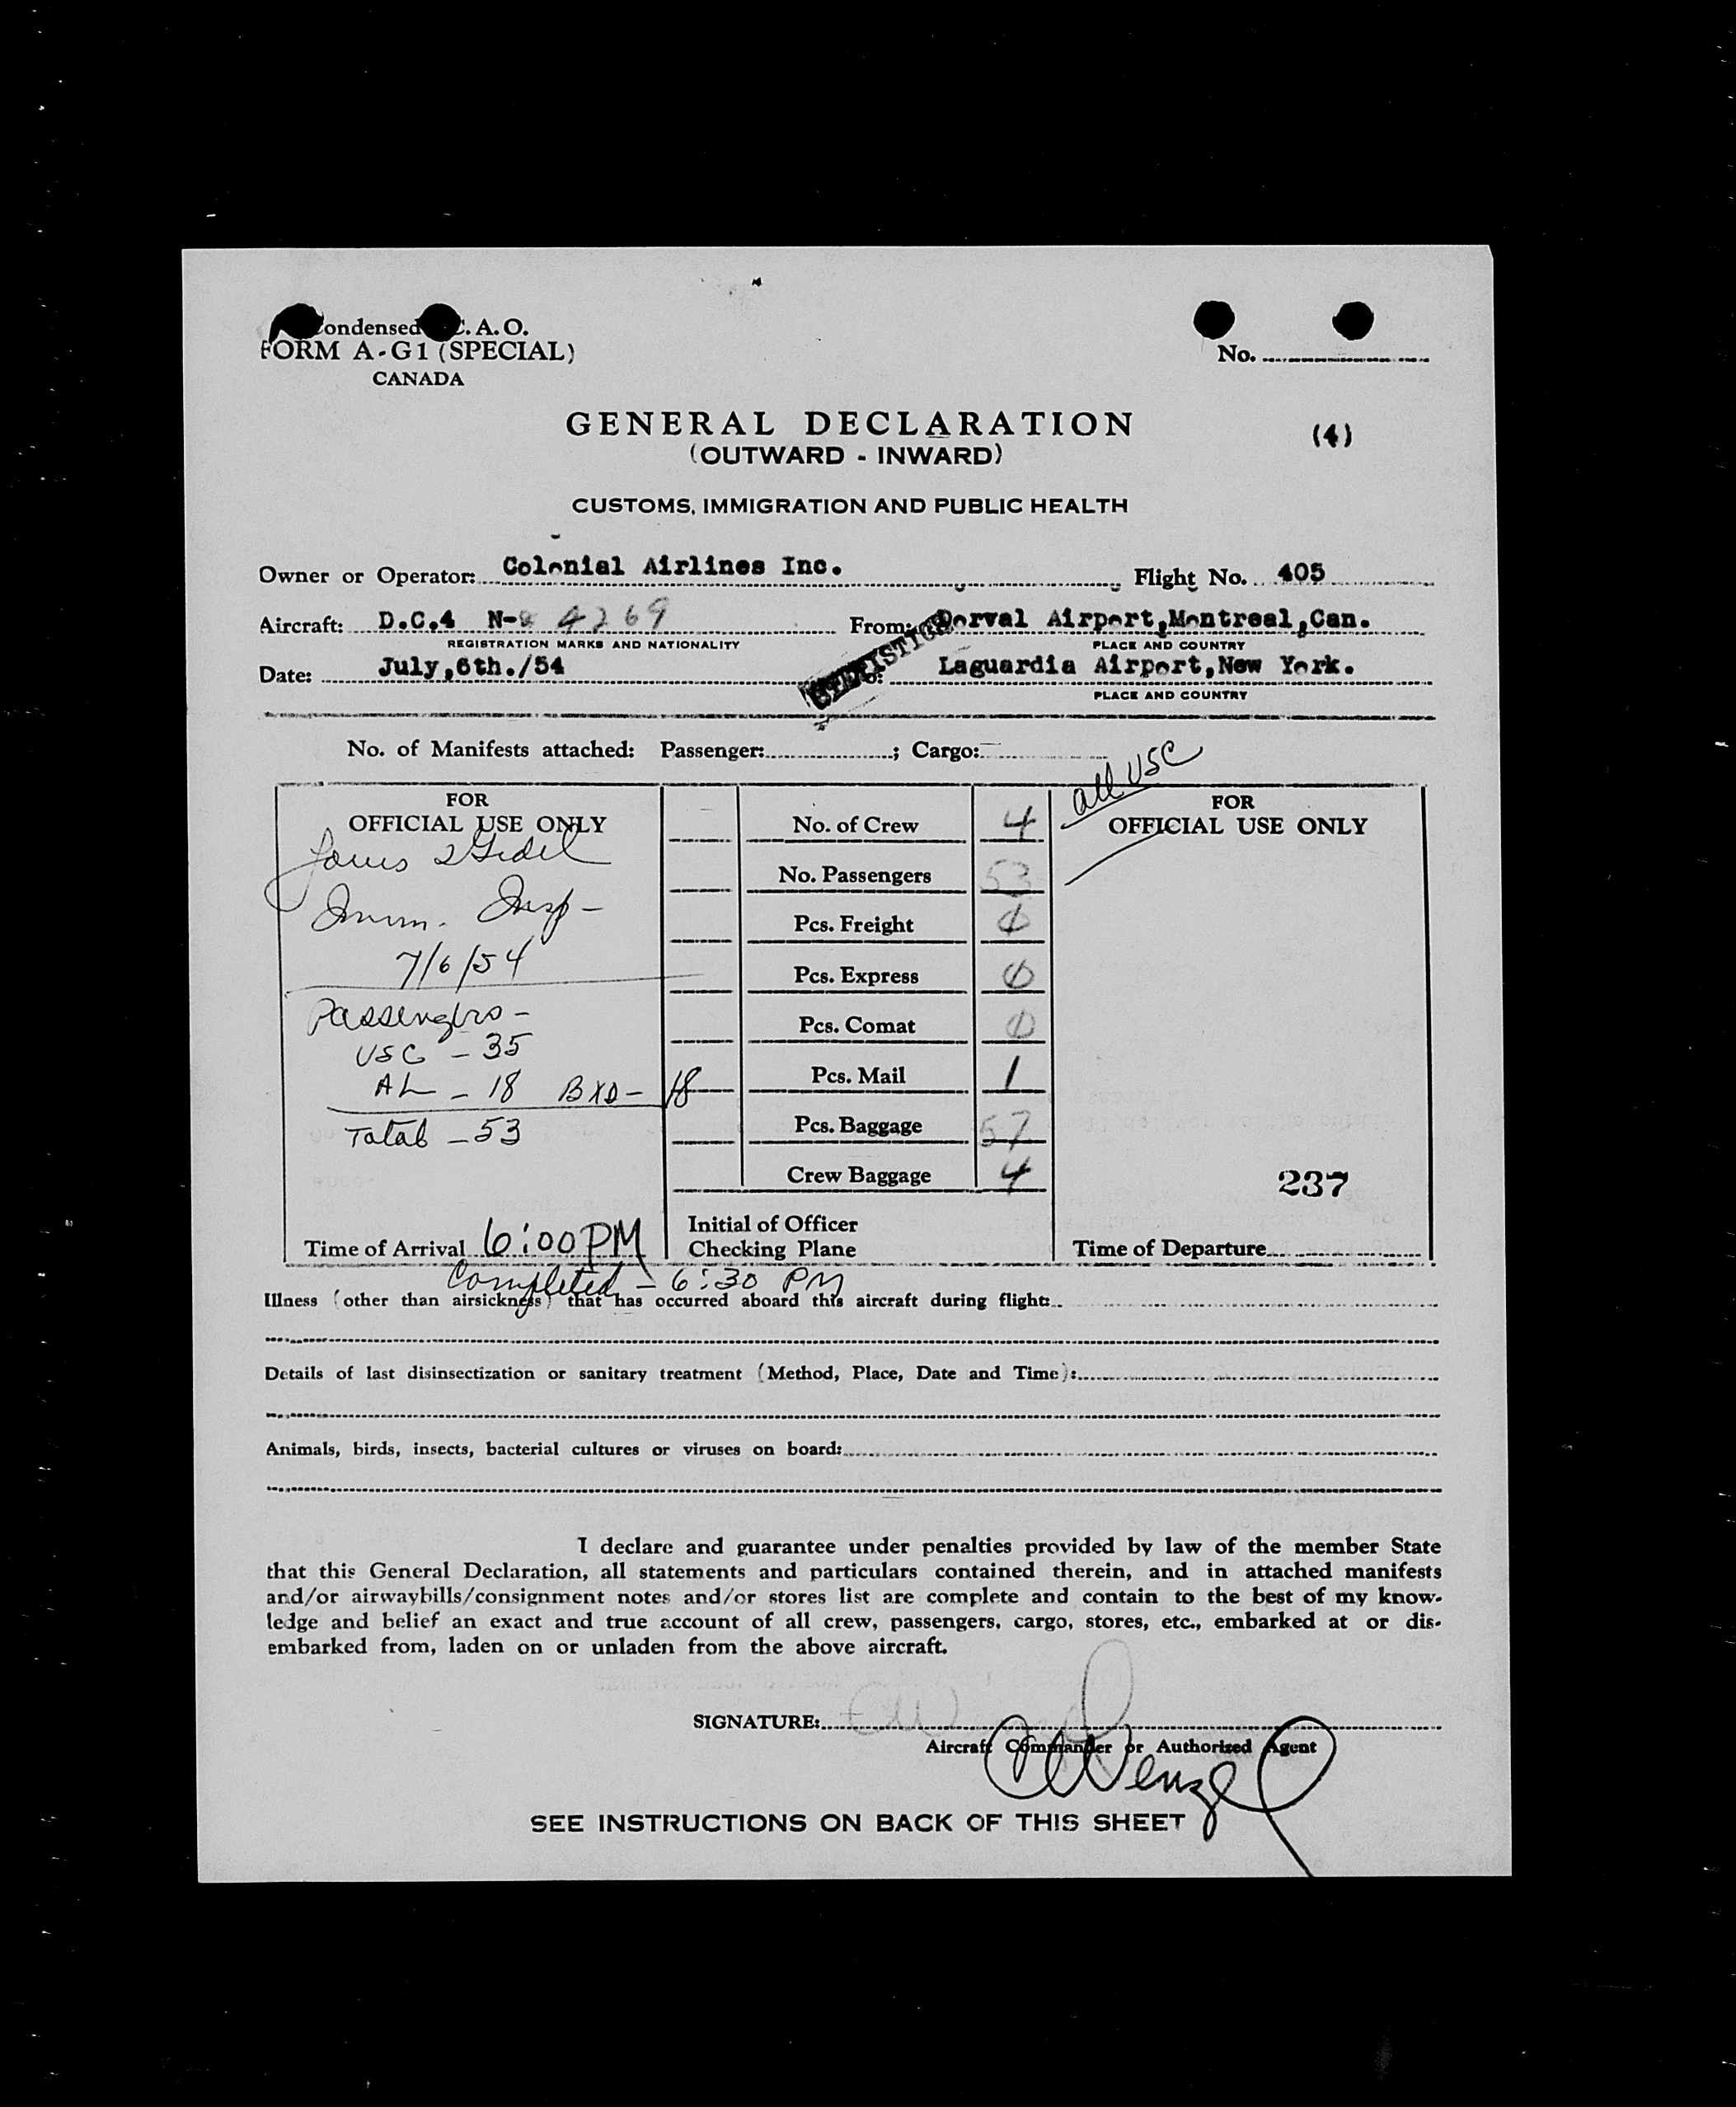 Condensed I.C.A.O.
FORM A-G1 (SPECIAL)
CANADA
No.
GENERAL DECLARATION
(4)
(OUTWARD - INWARD)
CUSTOMS, IMMIGRATION AND PUBLIC HEALTH
Owner or Operator: Colonial Airlines Inc. Flight No. 405
Aircraft: D.C.4 N- 4269 From: Dorval Airport,Montreal,Can.
REGISTRATION MARKS AND NATIONALITY PLACE AND COUNTRY
Date: July,6th./54 To: Laguardia Airport,New York.
PLACE AND COUNTRY
STATISTICS
No. of Manifests attached: Passenger: ; Cargo:
all USC
FOR
OFFICIAL USE ONLY
Imm. Insp-
7/6/54
Passengers -
USC - 35
AL - 18 BXD - 18
Total - 53
Time of Arrival 6:00 PM
Completed - 6:30 PM
No. of Crew 4
No. Passengers 53
Pcs. Freight 0
Pcs. Express 0
Pcs. Comat 0
Pcs. Mail 1
Pcs. Baggage 57
Crew Baggage 4
Initial of Officer
Checking Plane
FOR
OFFICIAL USE ONLY
237
Time of Departure
Illness (other than airsickness) that has occurred aboard this aircraft during flight:
Details of last disinsectization or sanitary treatment (Method, Place, Date and Time):
Animals, birds, insects, bacterial cultures or viruses on board:
I declare and guarantee under penalties provided by law of the member State
that this General Declaration, all statements and particulars contained therein, and in attached manifests
and/or airwaybills/consignment notes and/or stores list are complete and contain to the best of my know-
ledge and belief an exact and true account of all crew, passengers, cargo, stores, etc., embarked at or dis-
embarked from, laden on or unladen from the above aircraft.
SIGNATURE:
Aircraft Commander or Authorized Agent
SEE INSTRUCTIONS ON BACK OF THIS SHEET